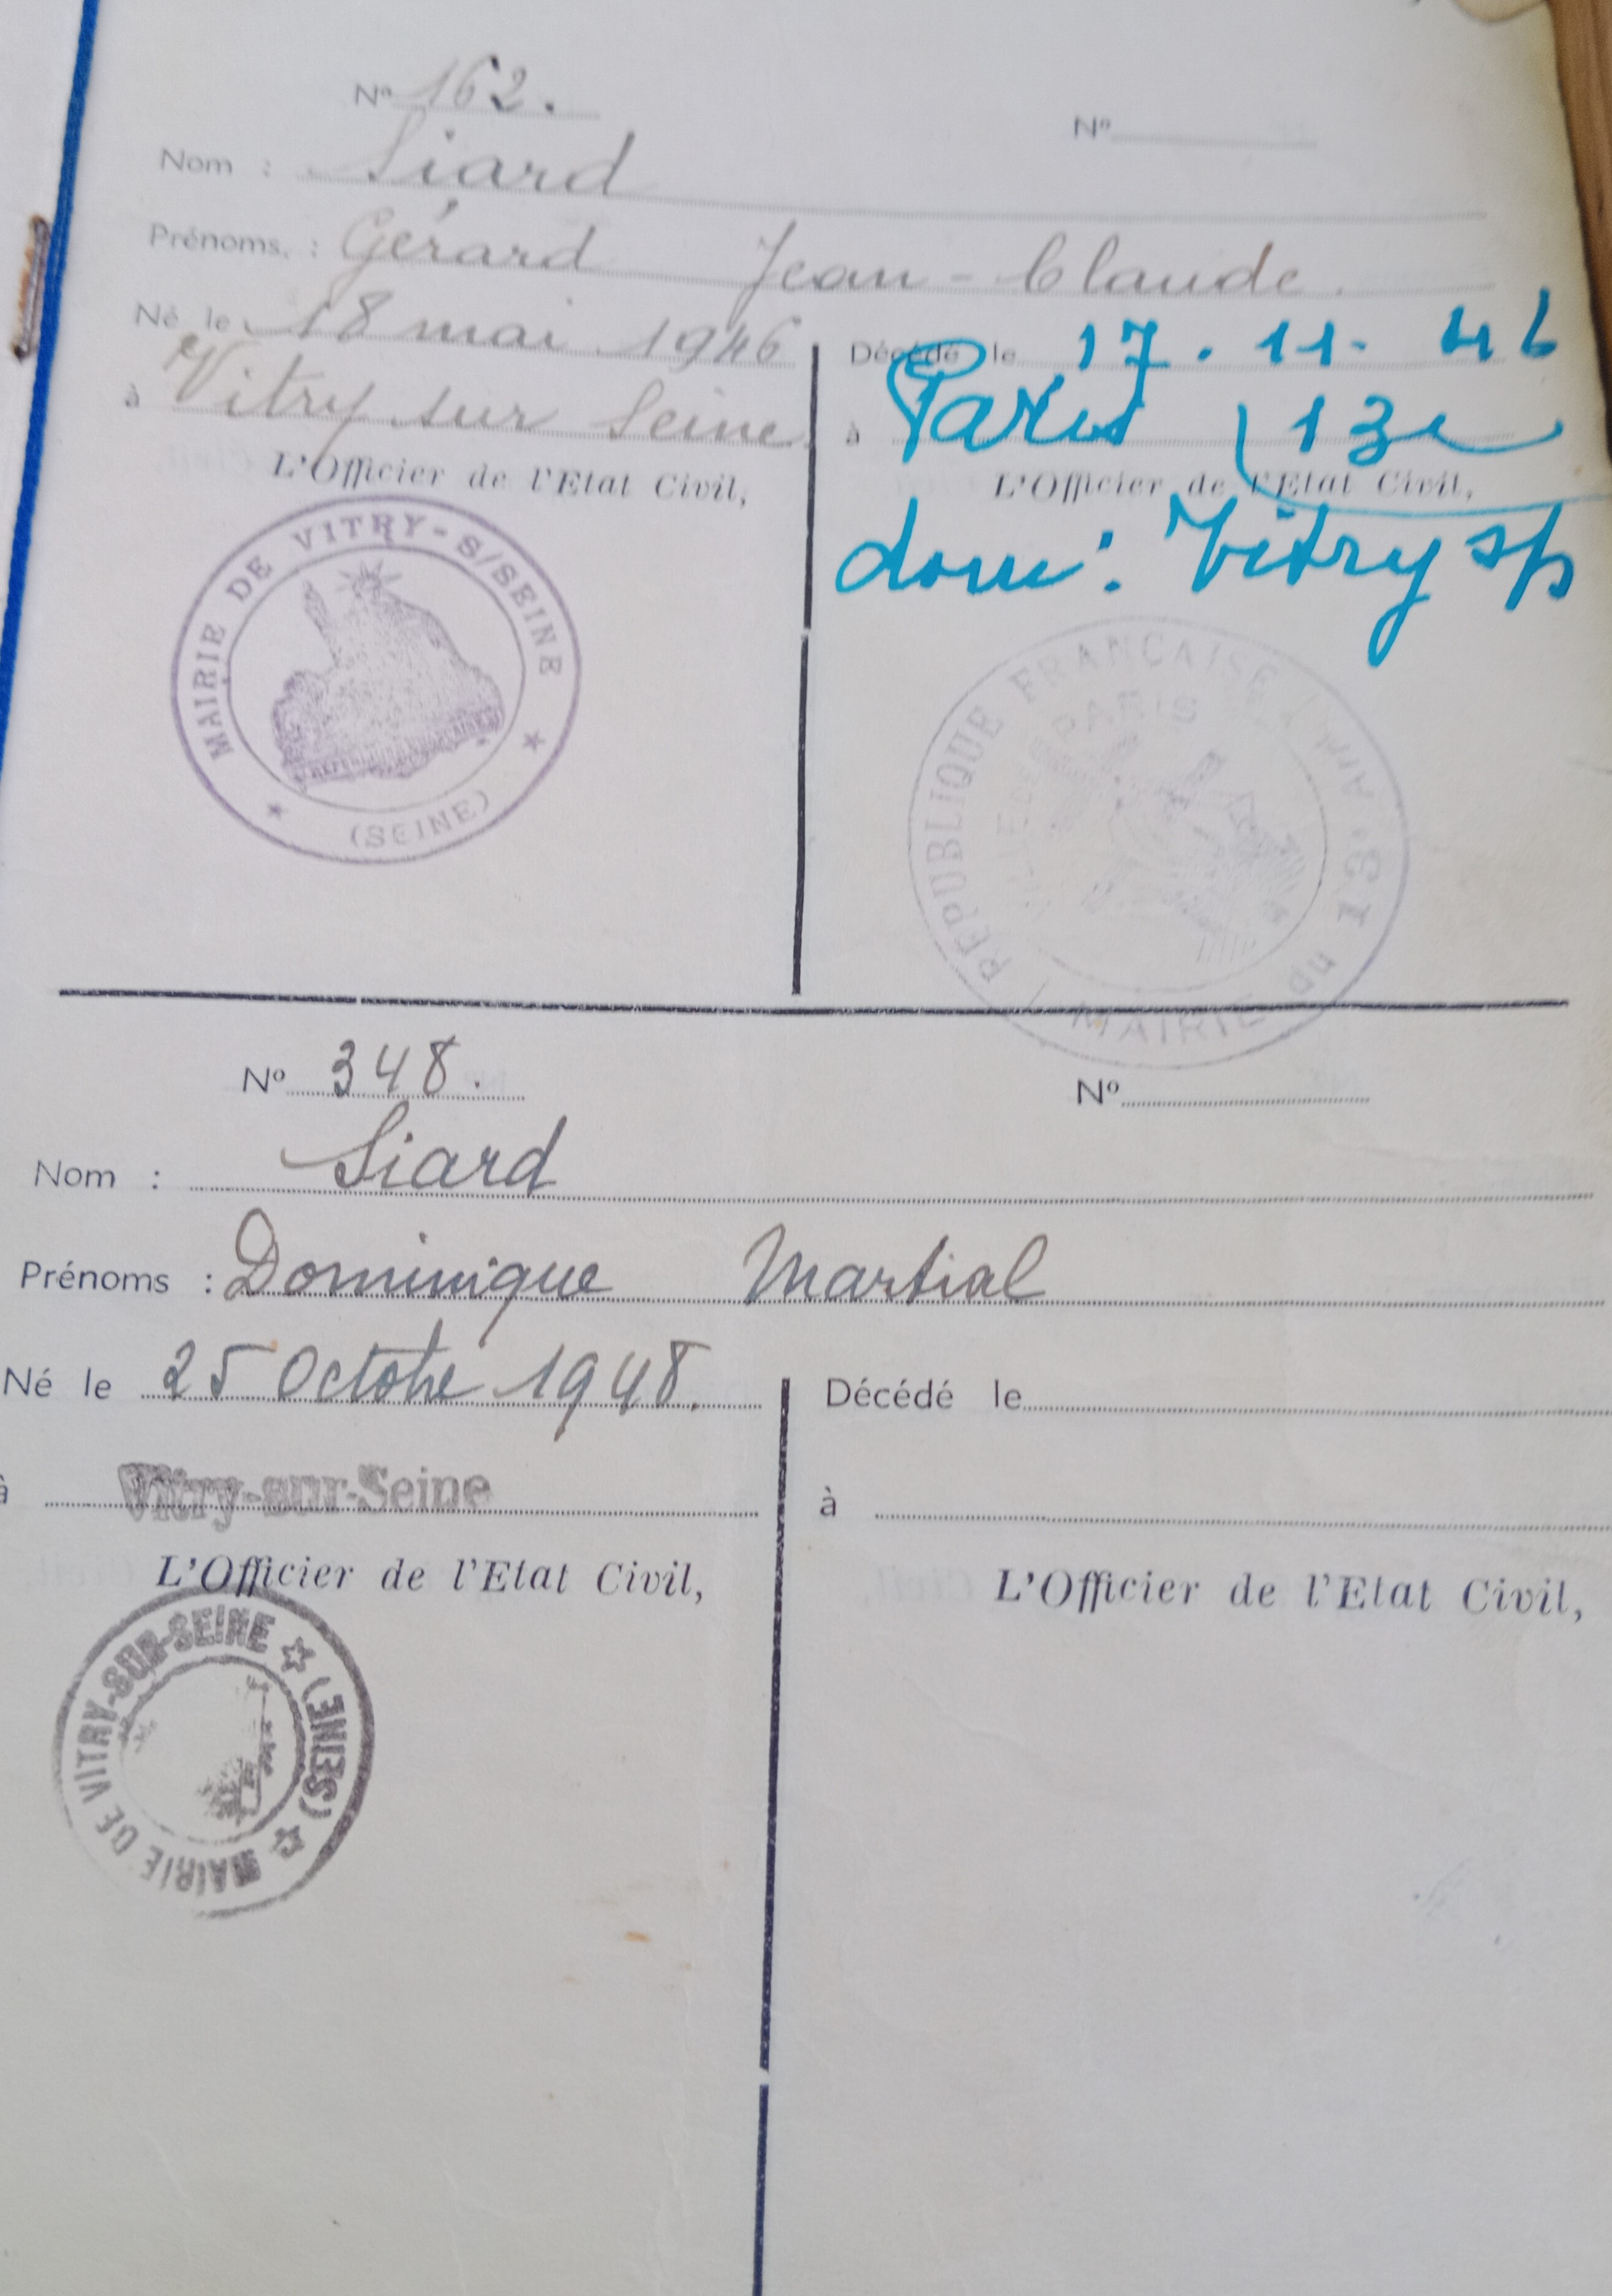 Nº 162.
Nº
Nom : Siard
Prénoms. : Gérard Jean-Claude.
Né le 18 mai 1946
Décédé le 17.11.46
à Vitry sur Seine
à Paris 13e
L'Officier de l'Etat Civil,
L'Officier de l'Etat Civil,
dom: Vitry sp
MAIRIE DE VITRY-S/SEINE
(SEINE)
REPUBLIQUE FRANÇAISE
VILLE DE PARIS
MAIRIE DU 13e Arrt
Nº 348.
Nº
Nom : Siard
Prénoms : Dominique Martial
Né le 25 Octobre 1948.
Décédé le
à Vitry-sur-Seine
à
L'Officier de l'Etat Civil,
L'Officier de l'Etat Civil,
MAIRIE DE VITRY-SUR-SEINE
(SEINE)